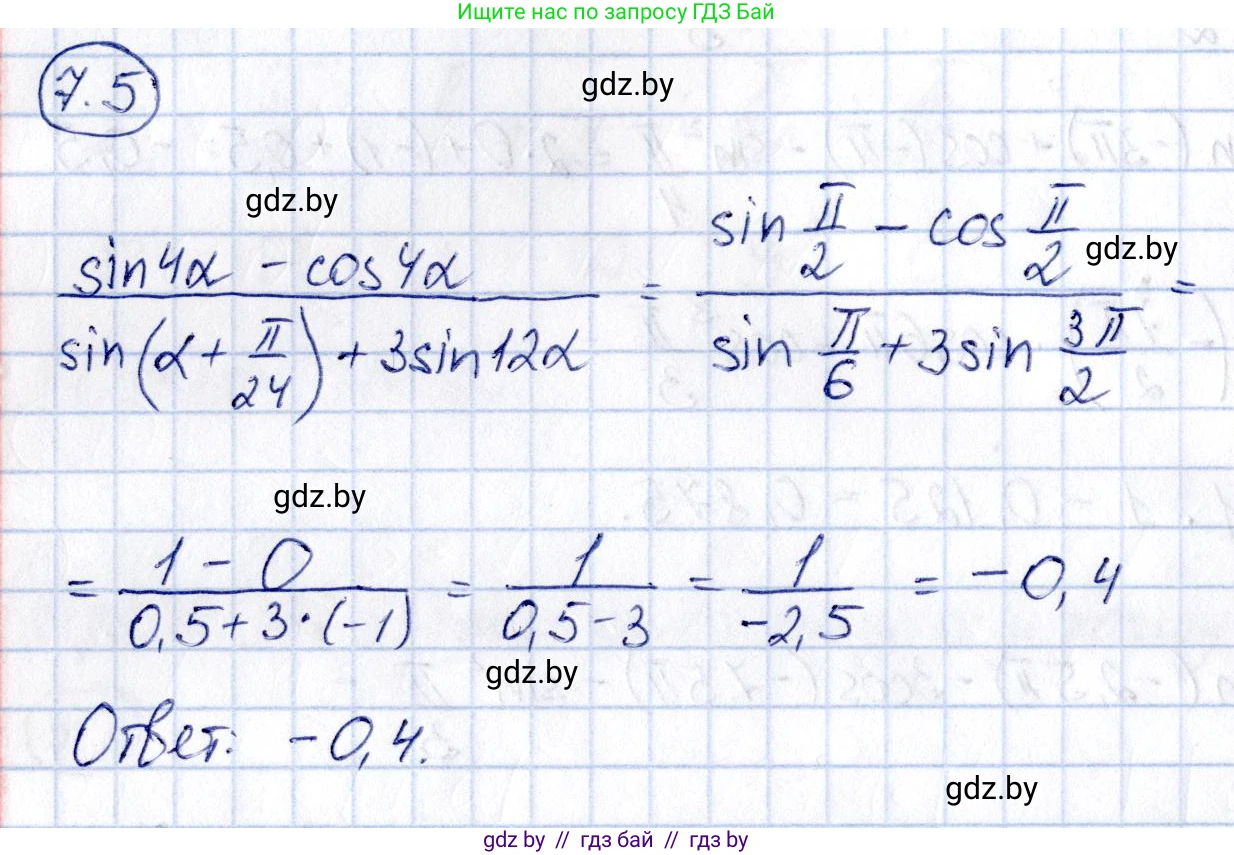 Ищите нас по запросу ГДЗ Бай
7.5
gdz.by
gdz.by
gdz.by
(sin4α - cos4α) / (sin(α + π/24) + 3sin12α) = (sin π/2 - cos π/2) / (sin π/6 + 3sin 3π/2) =
gdz.by
= (1 - 0) / (0,5 + 3·(-1)) = 1 / (0,5 - 3) = 1 / (-2,5) = -0,4
gdz.by
Ответ: -0,4.
gdz.by
gdz by // гдз бай // гдз by